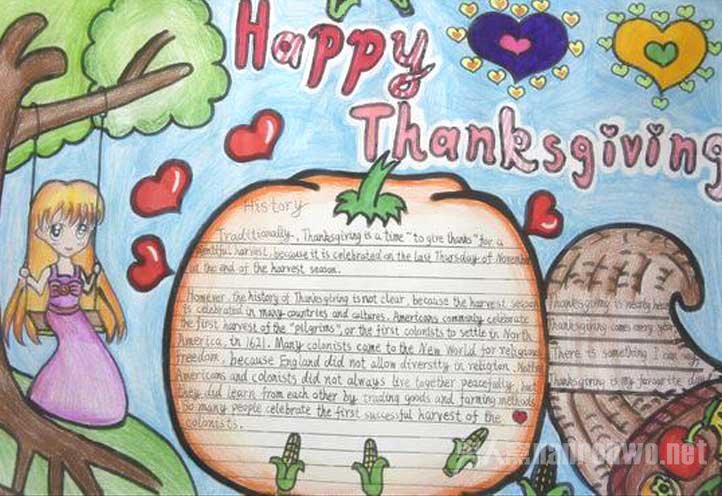 Happy
Thanksgiving
History
Traditionally, Thanksgiving is a time "to give thanks" for a
harvest, because it is celebrated on the last Thursday of November
at the end of the harvest season.
However, the history of Thanksgiving is not clear, because the harvest season
is celebrated in many countries and cultures. Americans commonly celebrate
the first harvest of the "pilgrims", or the first colonists to settle in North
America, in 1621. Many colonists came to the New World for religious
freedom, because England did not allow diversity in religion.
Americans and colonists did not always live together peacefully, but
they did learn from each other by trading goods and farming methods
So many people celebrate the first successful harvest of the
colonists.
Thanksgiving is nearly here
Thanksgiving comes every year
There is something I can say
Thanksgiving is my favourite